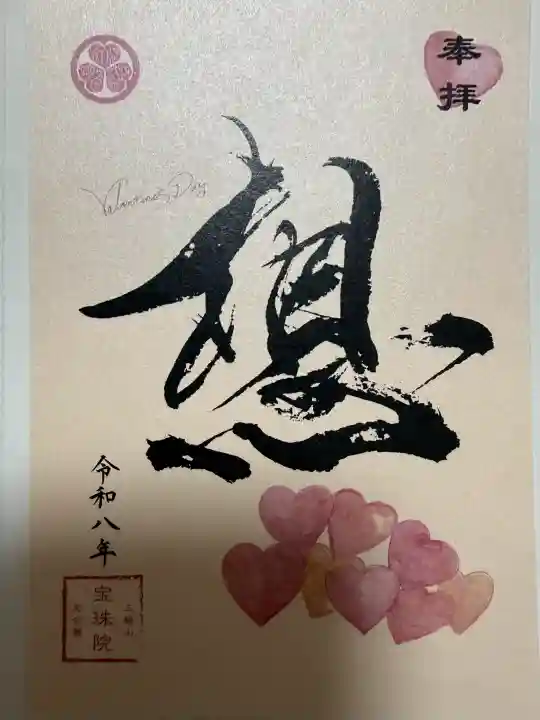 奉拝
Valentine's Day
想
令和八年
三縁山
宝珠院